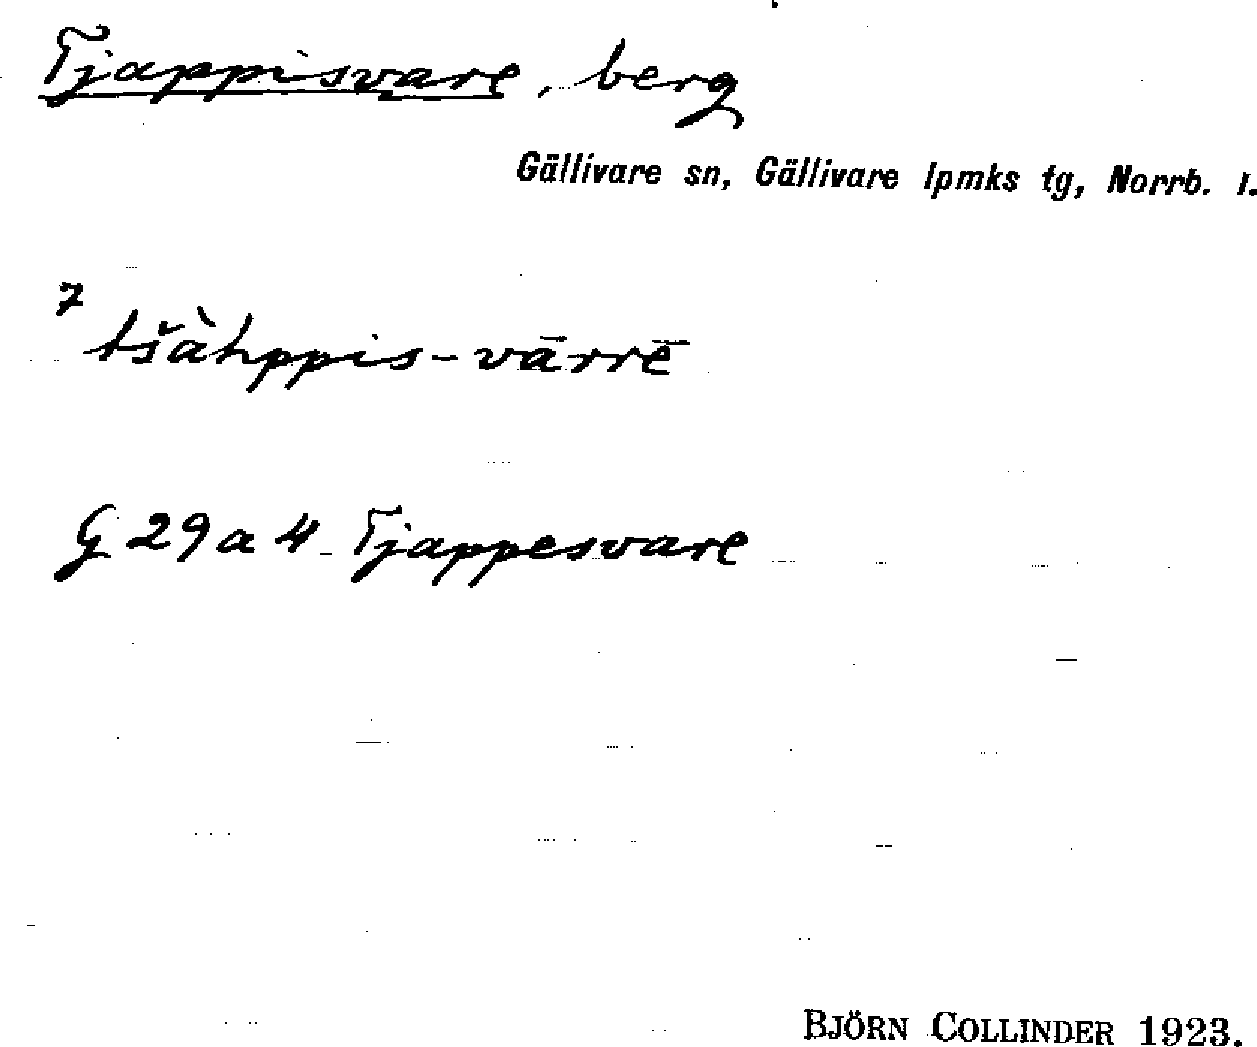 Tjappisvare, berg
Gällivare sn, Gällivare lpmks tg, Norrb. l.
7
tšàhppis-vārrē
G 29 a 4 Tjappesvare
BJÖRN COLLINDER 1923.